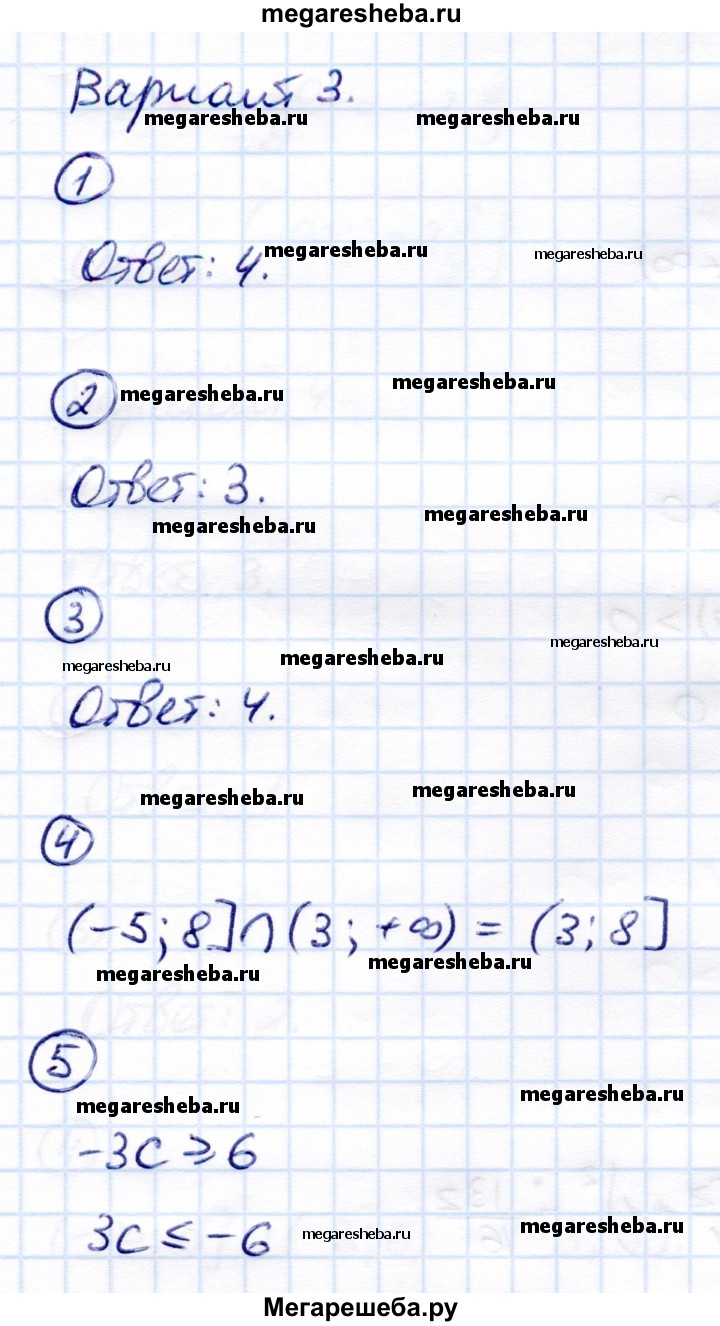 megaresheba.ru
Вариант 3.
megaresheba.ru megaresheba.ru
1
Ответ: 4.
megaresheba.ru megaresheba.ru
2 megaresheba.ru megaresheba.ru
Ответ: 3.
megaresheba.ru megaresheba.ru
3
megaresheba.ru megaresheba.ru megaresheba.ru
Ответ: 4.
megaresheba.ru megaresheba.ru
4
(-5; 8] ∩ (3; +∞) = (3; 8]
megaresheba.ru megaresheba.ru
5
megaresheba.ru megaresheba.ru
-3c ⩾ 6
3c ≤ -6 megaresheba.ru megaresheba.ru
Мегарешеба.ру